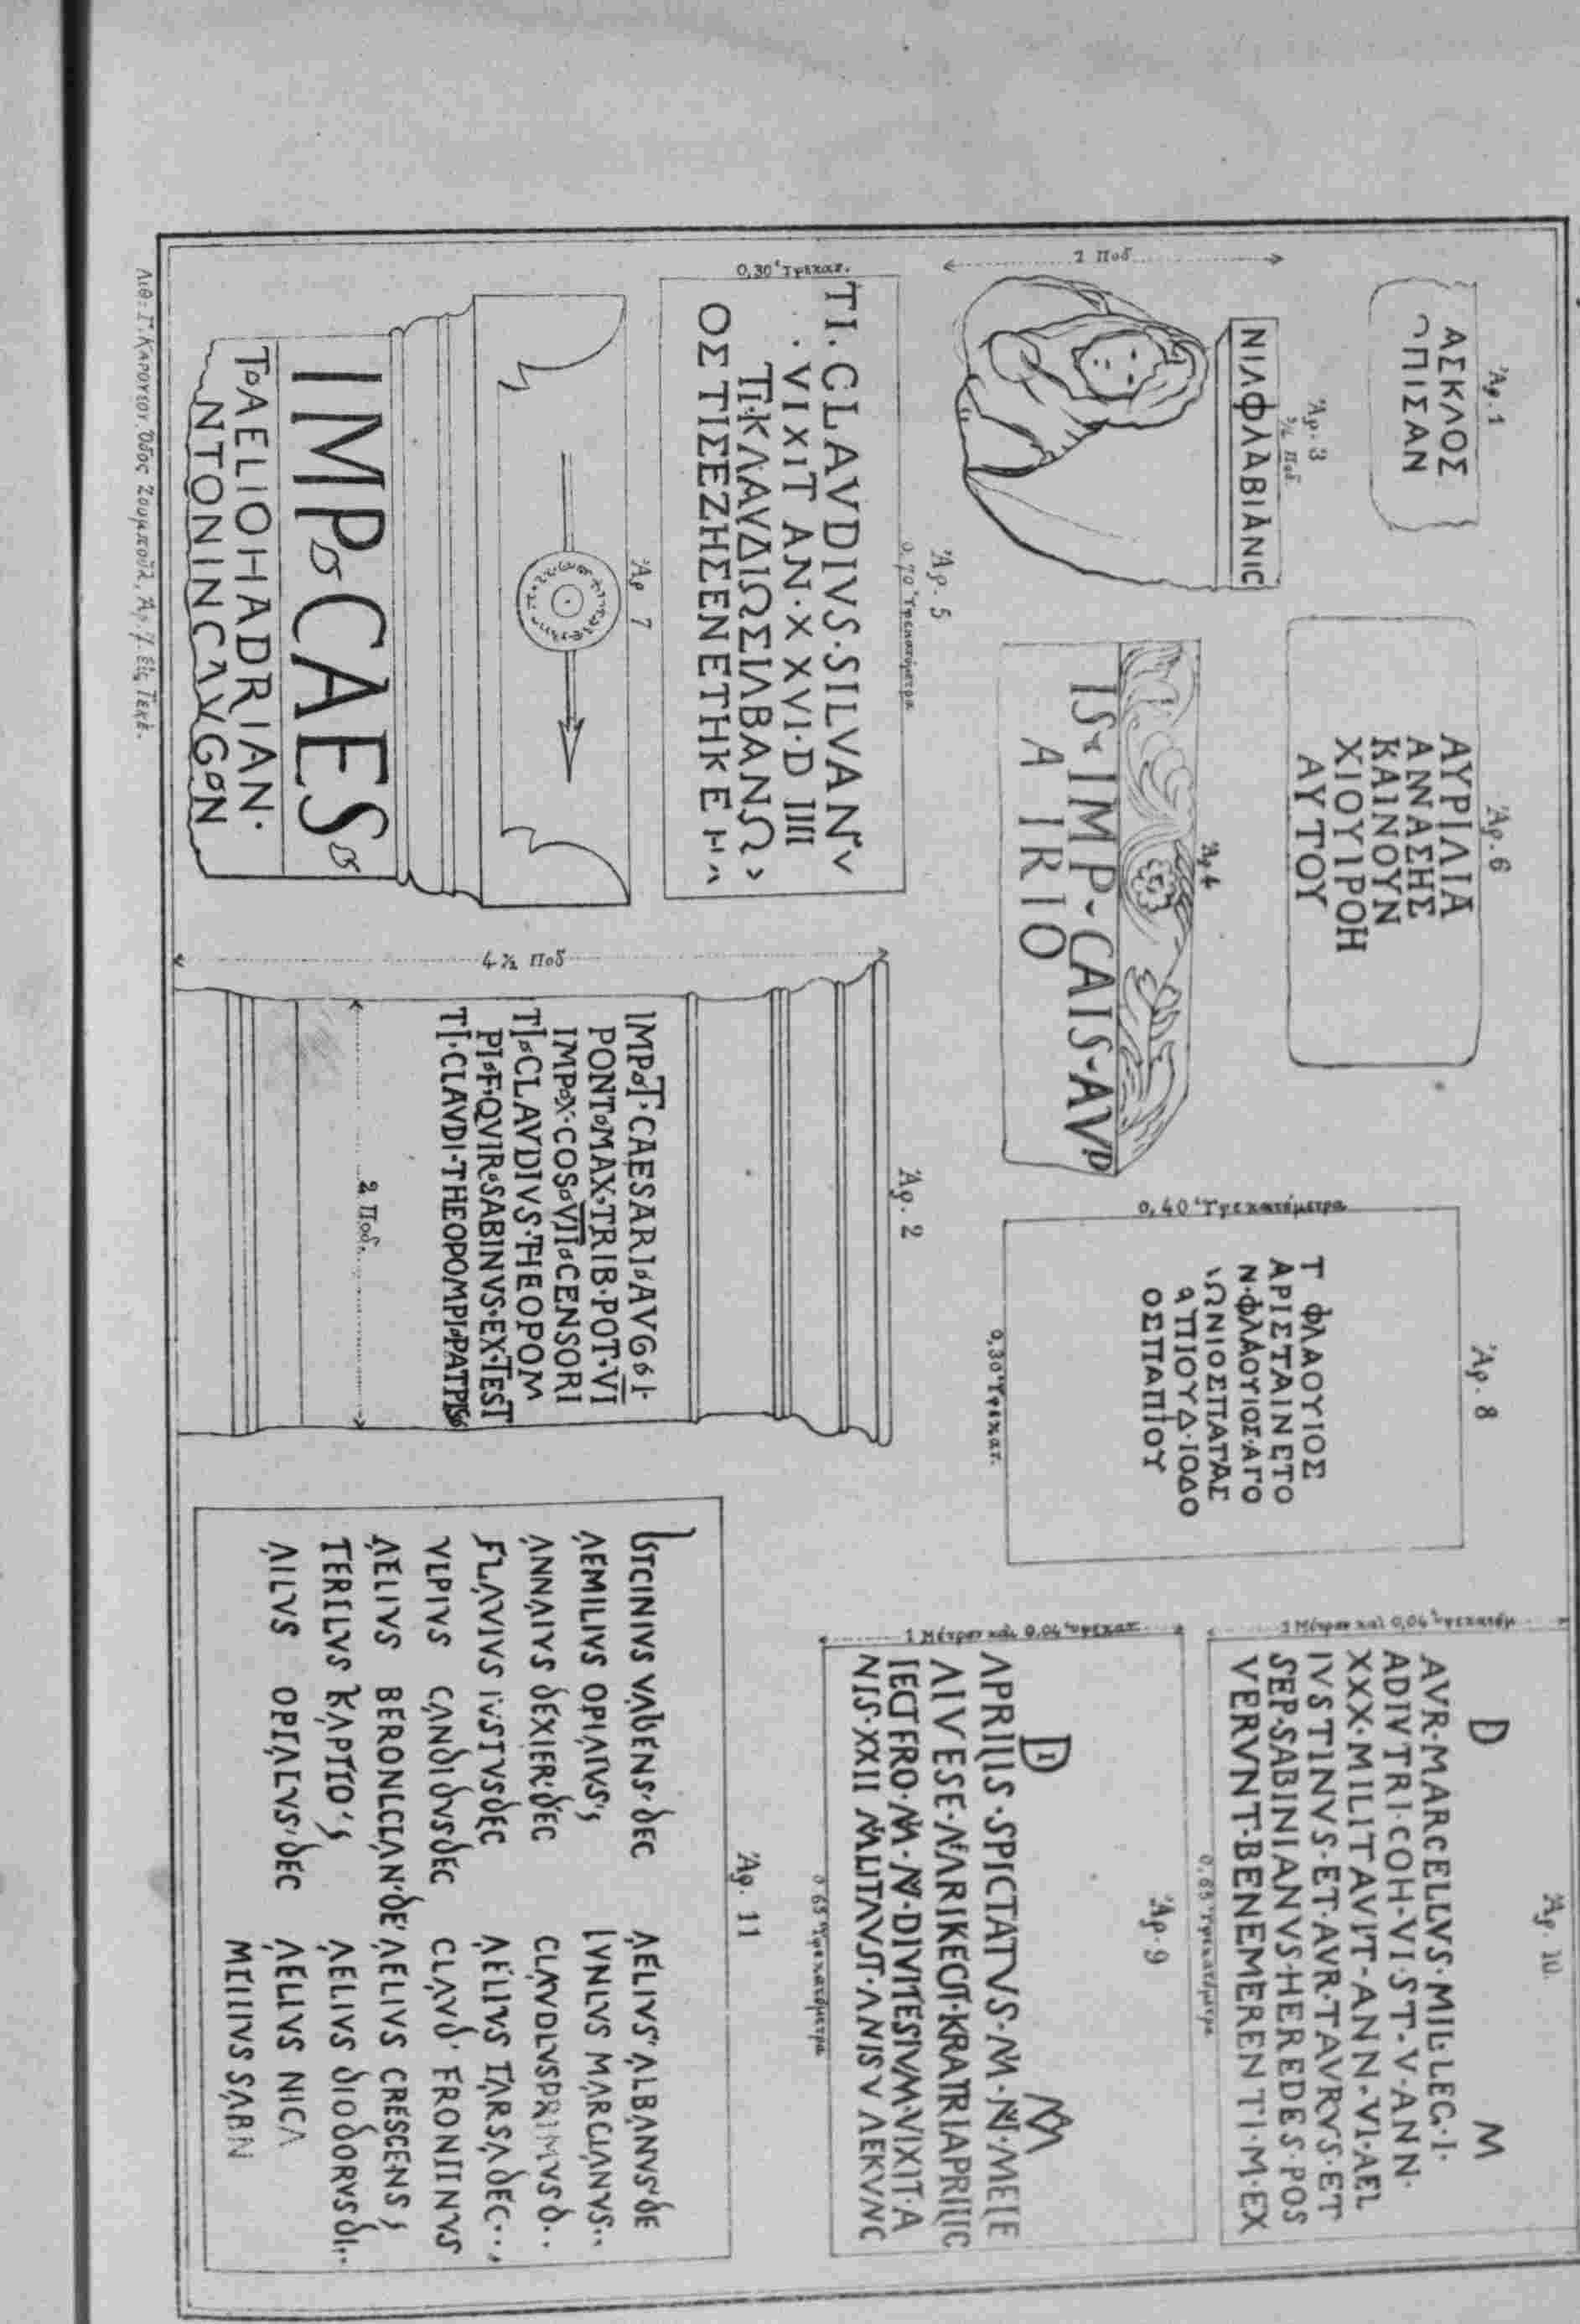 Ἀρ. 1
ΑΣΚΛΟΣ
ΠΙΣΑΝ
Ἀρ. 6
ΑΥΡΙΛΙΑ
ΑΝΝΑΣΗΣ
ΚΑΙΝΟΥΝ
ΧΙΟΥΙΡΟΗ
ΑΥΤΟΥ
Ἀρ. 8
Τ ΦΛΑΟΥΙΟΣ
ΑΡΙΣΤΑΙΝΕΤΟ
Ν·ΦΛΑΟΥΙΟΣ·ΑΓΟ
ΩΝΙΟΣΠΑΤΑΣ
ΠΙΟΥΔ·ΙΟΔΟ
ΟΣΠΑΠΙΟΥ
0,40 Ὑφεκατόμετρα
0,30 Ὑφεκατ.
Ἀρ. 10.
D M
AVR·MARCELLVS·MIL·LEG·I·
ADIVTRI·COH·VI·ST·V·ANN·
XXX·MILITAVIT·ANN·VI·AEL
IVSTINVS·ET·AVR·TAVRVS·ET
SEP·SABINIANVS·HEREDES·POS
VERVNT·BENEMERENTI·M·EX
1 Μέτρον καὶ 0,04 ὑφεκατόμ
0,65 Ὑφεκατόμετρα
Ἀρ. 3
ΝΙΛΦΛΑΒΙΑΝΙC
2 Ποδ
Ἀρ 4
IS IMP·CAIS·AVD
A IRIO
Ἀρ. 9
D M
APRILIS·SPICTATVS·M·N·MELE
AIVESE·MARIKECIT·KRATRIAPRILIC
IECIT FRO·M·N·DIVITESIVM·VIXIT·A
NIS·XXII MILITAVST·ANIS V AEKVNC
1 Μέτρον καὶ 0,04 ὑφεκατ.
0 65 Ὑφεκατόμετρα
Ἀρ. 5
0,70 Ὑφεκατόμετρα
0,30 Ὑφεκατ.
TI·CLAVDIVS·SILVAN
·VIXIT AN·XXVI·D IIII
ΤΙ·ΚΛΑΥΔΙΩΣΙΛΒΑΝΩ
ΟΣΤΙΣΕΖΗΣΕΝΕΤΗΚΕ
Ἀρ 7
IMP CAES
T AELIOHADRIAN·
NTONINCAVGON
Ἀρ. 2
4 ½ Ποδ
IMP·T·CAESARI·AVG·I·
PONT·MAX·TRIB·POT·VI
IMP·X·COS·VII·CENSORI
TI·CLAVDIVS·THEOPOM
PI·F·QVIR·SABINVS·EX·TEST
TI·CLAVDI·THEOPOMPI·PATRIS
2 Ποδ.
Ἀρ. 11
VALENS·DEC AELIVS ALBANVS·DE
AEMILIVS OPIATVS IVNLVS MARCIANVS··
ANNAIVS DEXIER·DEC CLAVDLVSPRIMVS D··
FLAVIVS IVSTVSDEC AELIVS TARSA DEC··
VLPIVS CANDIDVSDEC CLAVD FRONTINVS
AELIVS BERONLCIAN·DE AELIVS CRESCENS
TERILVS KAPITO AELIVS DIODORVS DI··
AILVS OPTALVS·DEC AELIVS NICA
SABN
Λιθ: Γ. Καρούσου Ὁδὸς Ζουμπούλ. Ἀρ. 7. Εἰς Τεκὲ.